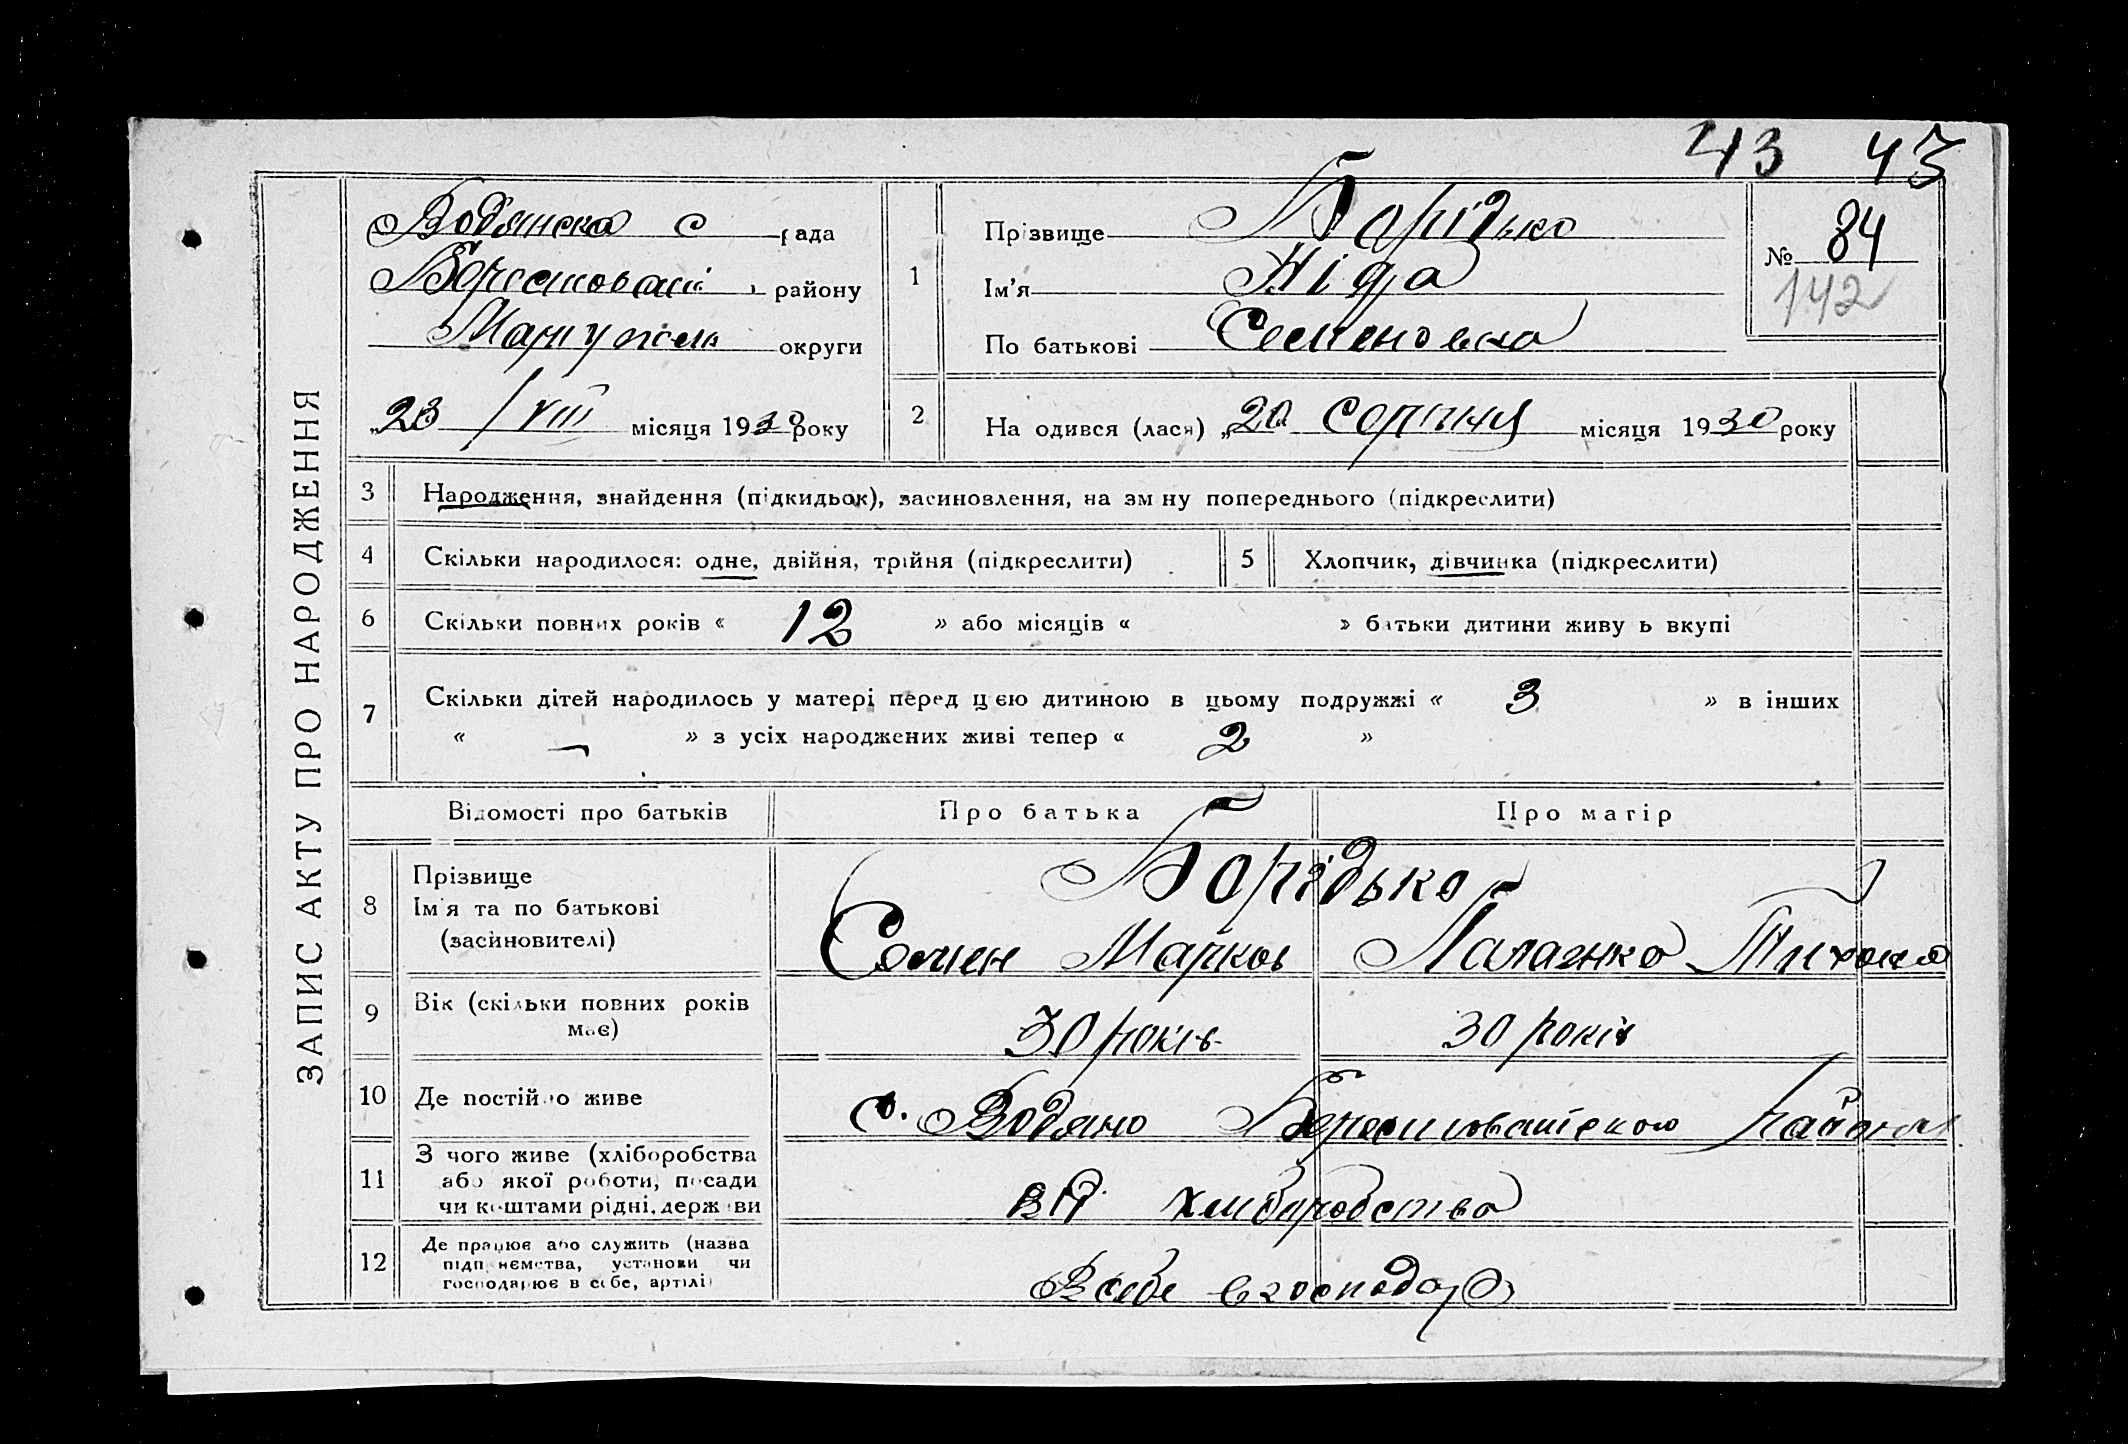 43 43
ЗАПИС АКТУ ПРО НАРОДЖЕННЯ
Водянска с рада
району
Маріуполь округи
23 / VIII місяця 1930 року
1 Прізвище Борідько
Ім'я Ніда
По батькові Семеновна
№ 84
142
2 На одився (лася) „20 серпня місяця 1930 року
3 Народження, знайдення (підкидьок), засиновлення, на зм ну попереднього (підкреслити)
4 Скільки народилося: одне, двійня, трійня (підкреслити)
5 Хлопчик, дівчинка (підкреслити)
6 Скільки повних років « 12 » або місяців « » батьки дитини живу ь вкупі
7 Скільки дітей народилось у матері перед цією дитиною в цьому подружжі « 3 » в інших
« — » з усіх народжених живі тепер « 2 »
Відомості про батьків Про батька Про матір
8 Прізвище
Ім'я та по батькові
(засиновителі)
Борідько
Семен Марков
9 Вік (скільки повних років
має)
30 років 30 років
10 Де постійно живе
с. Водяно району
11 З чого живе (хліборобства
або якої роботи, посади
чи коштами рідні, держави
від хліборобства
12 Де працює або служить (назва
підприємства, установи чи
господарює в себе, артілі)
В себе в господар